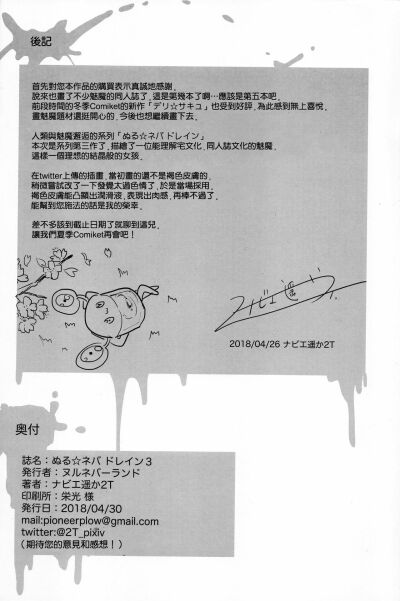 後記
首先對您本作品的購買表示真誠地感謝.
說來也畫了不少魅魔的同人誌了,這是第幾本了啊…應該是第五本吧.
前段時間的冬季Comiket的新作「デリ☆サキュ」也受到好評,為此感到無上喜悅.
畫魅魔題材還挺開心的,今後也想繼續畫下去.
人類與魅魔邂逅的系列「ぬる☆ネバ ドレイン」
本次是系列第三作了,描繪了一位能理解宅文化,同人誌文化的魅魔.
這樣一個理想的結晶般的女孩.
在twitter上傳的插畫,當初畫的還不是褐色皮膚的.
稍微嘗試改了一下發覺太過色情了,於是當場採用.
褐色皮膚能凸顯出潤滑液,表現出肉感,再棒不過了.
能幫到您施法的話是我的榮幸.
差不多該到截止日期了就聊到這兒.
讓我們夏季Comiket再會吧!
ナビエ遥か
2018/04/26 ナビエ遥か2T
奥付
誌名:ぬる☆ネバ ドレイン3
発行者:ヌルネバーランド
著者:ナビエ遥か2T
印刷所:栄光 様
発行日:2018/04/30
mail:pioneerplow@gmail.com
twitter:@2T_pixiv
(期待您的意見和感想!)